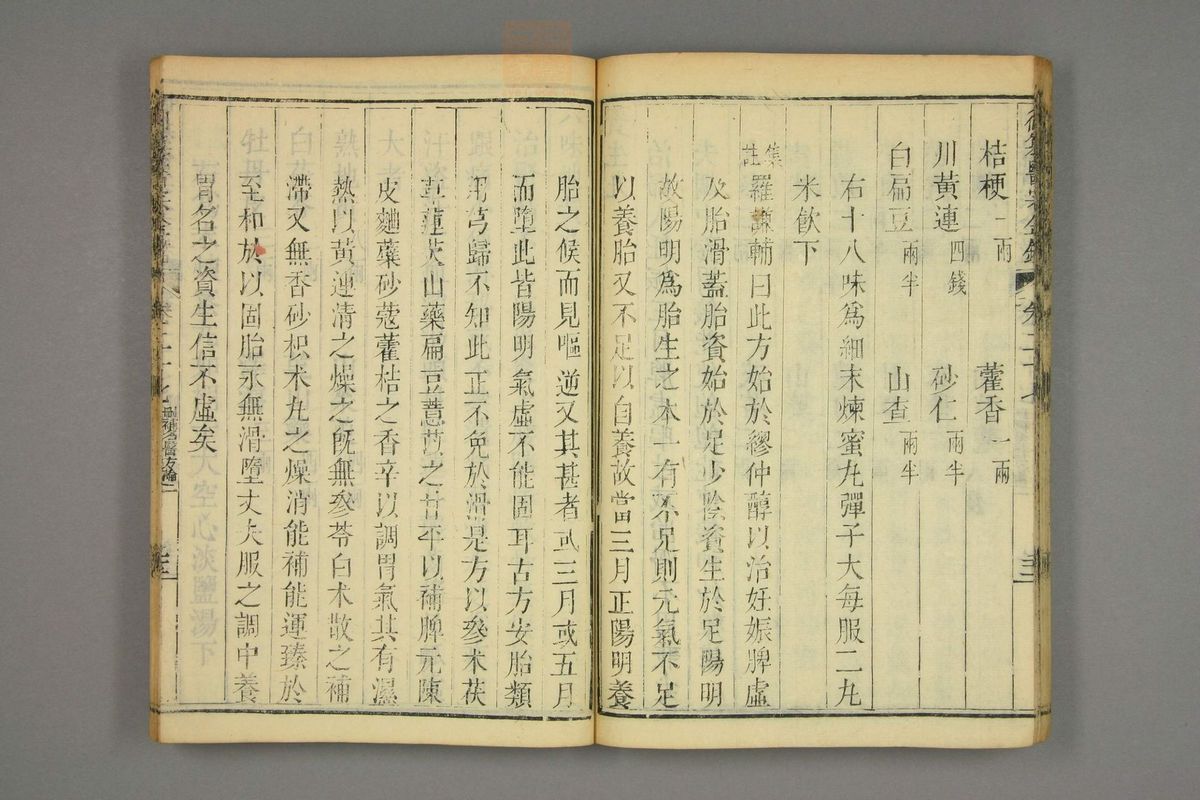 桔梗一兩　藿香一兩
川黃連四錢　砂仁兩半
白扁豆兩半　山查兩半
右十八味爲細末煉蜜丸彈子大每服二丸
米飲下
集註羅謙輔曰此方始於繆仲醇以治妊娠脾虛
及胎滑蓋胎資始於足少陰資生於足陽明
故陽明爲胎生之本一有不足則元氣不足
以養胎又不足以自養故當三月正陽明養
胎之候而見嘔逆又其甚者或三月或五月
而墮此皆陽明氣虛不能固耳古方安胎類
用芎歸不知此正不免於滑是方以參朮茯
草蓮芡山藥扁荳薏苡之甘平以補脾元陳
皮麯蘗砂蔻藿桔之香辛以調胃氣其有濕
熱以黃連清之燥之旣無參苓白朮散之補
滯又無香砂枳朮丸之燥消能補能運臻於
至和於以固胎永無滑墮丈夫服之調中養
胃名之資生信不虛矣
刪補名醫方論二